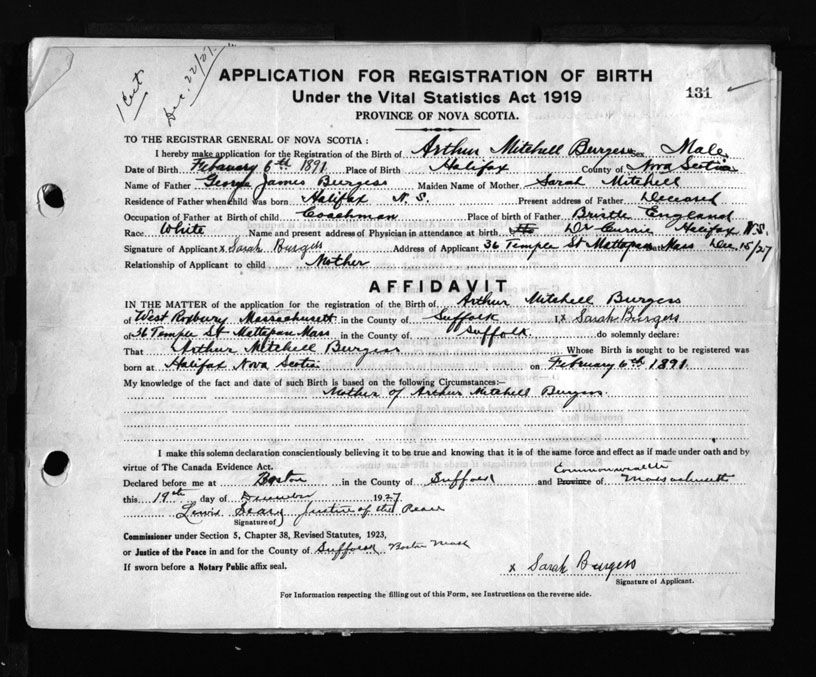 1 Cert
Dec. 22/27
APPLICATION FOR REGISTRATION OF BIRTH
Under the Vital Statistics Act 1919
131
PROVINCE OF NOVA SCOTIA.
TO THE REGISTRAR GENERAL OF NOVA SCOTIA :
I hereby make application for the Registration of the Birth of Arthur Mitchell Burgess Sex Male
Date of Birth February 6th 1891 Place of Birth Halifax County of Nova Scotia
Name of Father George James Burgess Maiden Name of Mother Sarah Mitchell
Residence of Father when child was born Halifax N.S. Present address of Father Deceased
Occupation of Father at Birth of child Coachman Place of birth of Father Bristle England
Race White Name and present address of Physician in attendance at birth Dr Currie Halifax N.S.
Signature of Applicant x Sarah Burgess Address of Applicant 36 Temple St Mattapan Mass Dec. 15/27
Relationship of Applicant to child Mother
AFFIDAVIT
IN THE MATTER of the application for the registration of the Birth of Arthur Mitchell Burgess
of West Roxbury Massachusett in the County of Suffolk I, x Sarah Burgess
of 36 Temple St Mattapan Mass in the County of Suffolk do solemnly declare:
That Arthur Mitchell Burgess Whose Birth is sought to be registered was
born at Halifax Nova Scotia on February 6th 1891
My knowledge of the fact and date of such Birth is based on the following Circumstances:—
Mother of Arthur Mitchell Burgess
I make this solemn declaration conscientiously believing it to be true and knowing that it is of the same force and effect as if made under oath and by
virtue of The Canada Evidence Act. Commonwealth
Declared before me at Boston in the County of Suffolk and Province of Massachusetts
this 19th day of December 1927
Lewis Sears Justice of the Peace
Signature of)
Commissioner under Section 5, Chapter 38, Revised Statutes, 1923,
or Justice of the Peace in and for the County of Suffolk Boston Mass
If sworn before a Notary Public affix seal. x Sarah Burgess
Signature of Applicant.
For Information respecting the filling out of this Form, see Instructions on the reverse side.